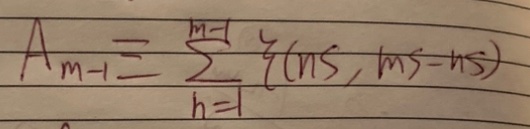 A_{m-1} ≡ \sum_{n=1}^{m-1} ξ(ns, ms-ns)